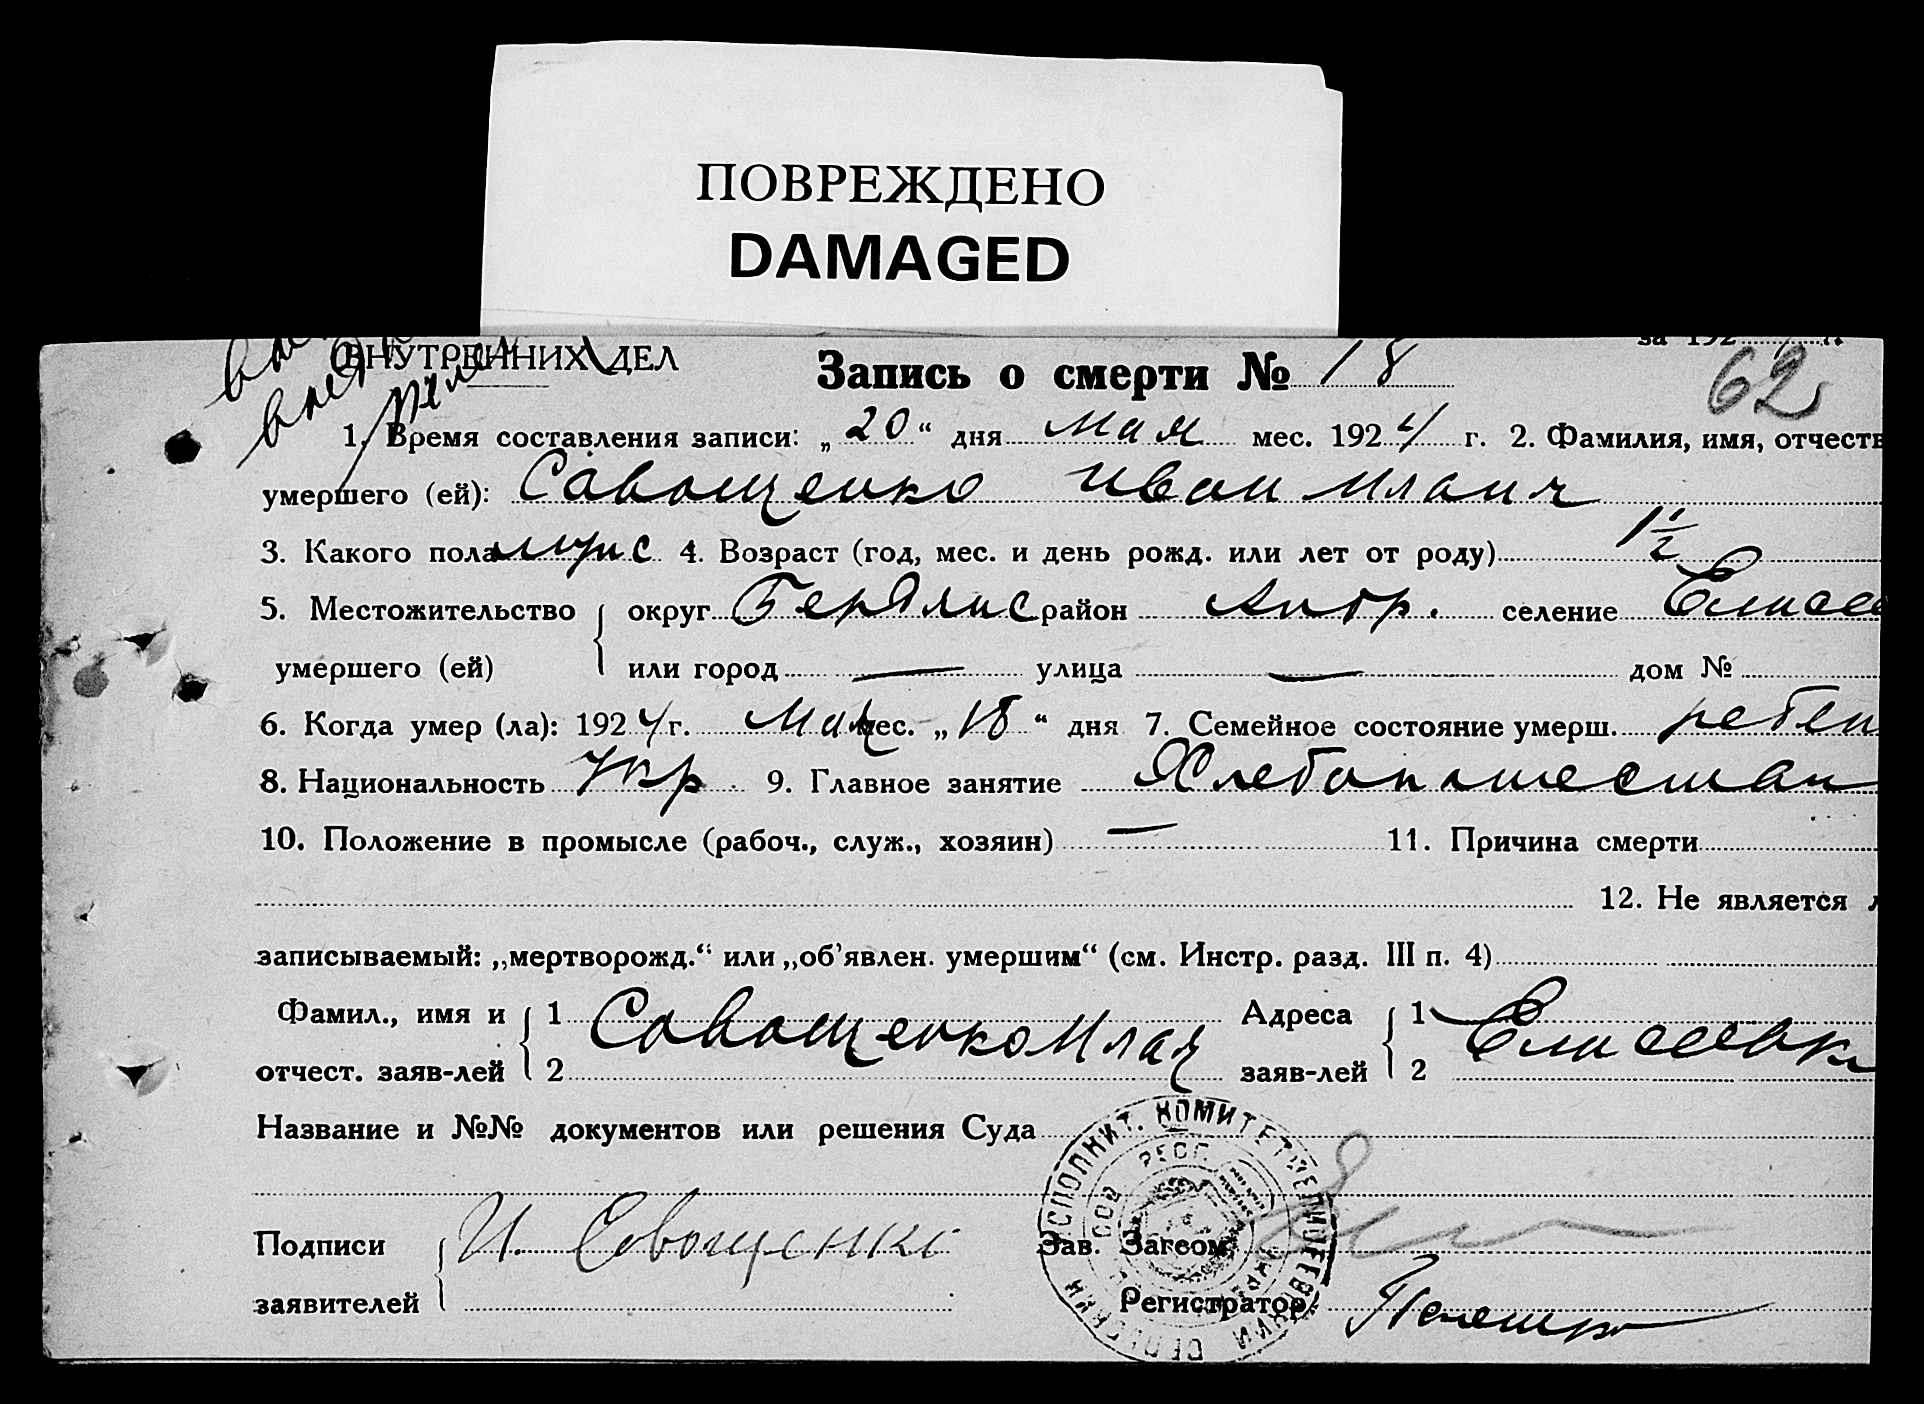 ПОВРЕЖДЕНО
DAMAGED
ВНУТРЕННИХ ДЕЛ
Запись о смерти № 18
за 192
62
1. Время составления записи: „20“ дня мая мес. 1924 г. 2. Фамилия, имя, отчеств
умершего (ей): Савощенко Иван Ильич
3. Какого пола муж 4. Возраст (год, мес. и день рожд. или лет от роду) 1 1/2
5. Местожительство округ Бердянс район Андр. селение Елисее
умершего (ей) или город — улица — дом №
6. Когда умер (ла): 1924 г. Мая мес. „18“ дня 7. Семейное состояние умерш. ребен
8. Национальность Укр 9. Главное занятие Хлебопашестван
10. Положение в промысле (рабоч., служ., хозяин) — 11. Причина смерти
12. Не является л
записываемый: „мертворожд.“ или „об'явлен. умершим“ (см. Инстр. разд. III п. 4)
Фамил., имя и 1 Савощенко Илья Адреса 1 Елисеевк
отчест. заяв-лей 2 заяв-лей 2
Название и №№ документов или решения Суда
ИСПОЛНИТ. КОМИТЕТ ЕЛИСЕЕВСКИЙ СЕЛЬСКИЙ
СОЦ СОВ РЕСП
Подписи И. Савощенко Зав. Загсом
заявителей Регистратор